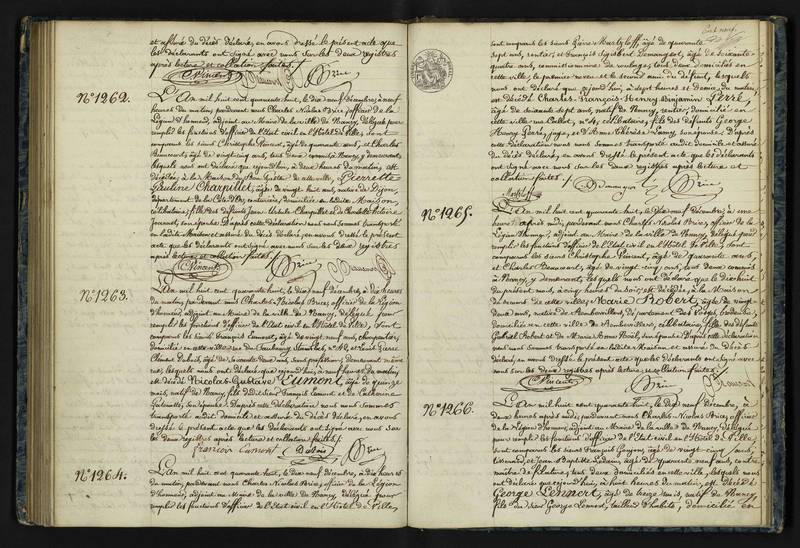 et assuré du décès déclaré, en avons dressé le présent acte que
les déclarants ont signé avec nous sur les deux registres
après lecture et collation faites ./.
Vincent
Beaucourt
Brice
N° 1262.
L'An mil huit cent quarante huit, le dix neuf décembre, à neuf
heures du matin, pardevant nous Charles Nicolas Brice, officier de la
Légion d'honneur, adjoint au Maire de la Ville de Nancy, délégué pour
remplir les fonctions d'officier de l'Etat civil en l'Hôtel de Ville, sont
comparus les sieurs Christophe Vincent, âgé de quarante ans, et Charles
Beaucourt, âgé de vingt cinq ans, tous deux commis à Nancy, y demeurants,
lesquels nous ont déclaré que cejourd'hui, à deux heures du matin, est
décédée, à la Maison de cette ville, Pierrette
Pauline Charpillet, âgée de vingt huit ans, native de Dijon,
département de la Côte d'Or, couturière, domiciliée en ladite Maison,
célibataire, fille des défunts Jean Charpillet et de
conjoints. D'après cette déclaration nous nous sommes transporté
en ladite Maison et assuré du décès déclaré, en avons dressé le présent
acte que les déclarants ont signé avec nous sur les deux registres
après lecture et collation faites ./.
Vincent
Brice
Beaucourt
N° 1263.
L'An mil huit cent quarante huit, le dix neuf décembre, à dix heures
du matin, pardevant nous Charles Nicolas Brice, officier de la Légion
d'honneur, adjoint au Maire de la ville de Nancy, délégué pour
remplir les fonctions d'officier de l'Etat civil en l'Hôtel de Ville, sont
comparus les sieurs François Eumont, âgé de vingt neuf ans, charpentier,
domicilié en cette ville rue du Faubourg Stanislas, n° 40, et Louis Pierre
âgé de soixante deux ans, sans profession, demeurant même
rue, lesquels nous ont déclaré que cejourd'hui, à neuf heures du matin
est décédé Nicolas Gustave Eumont, âgé de quinze
mois, natif de Nancy, fils dudit sieur François Eumont et de Catherine
son épouse. D'après cette déclaration nous nous sommes
transporté audit domicile et assuré du décès déclaré, en avons
dressé le présent acte que les déclarants ont signé avec nous sur
les deux registres après lecture et collation faites ./.
François Eumont
Brice
N° 1264.
L'An mil huit cent quarante huit, le dix neuf décembre, à dix heures
du matin, pardevant nous Charles Nicolas Brice, officier de la Légion
d'honneur, adjoint au Maire de la ville de Nancy, délégué pour
remplir les fonctions d'officier de l'Etat civil en l'Hôtel de Ville,
sont comparus les sieurs Pierre, âgé de quarante
sept ans, rentier, et François Demangeot, âgé de soixante
quatre ans, commissionnaire de roulages, tous deux domiciliés en
cette ville, le premier neveu et le second ami du défunt, lesquels
nous ont déclaré que cejourd'hui, à sept heures et demie du matin,
est décédé Charles François Henry Benjamin
âgé de soixante sept ans, natif de Nancy, rentier, domicilié en
cette ville rue Callot, n° 4, célibataire, fils des défunts George
Henry juge, et d'Anne Thérèse son épouse. D'après
cette déclaration nous nous sommes transporté audit domicile et assuré
du décès déclaré, en avons dressé le présent acte que les déclarants
ont signé avec nous sur les deux registres après lecture et
collation faites ./.
Demangeot
Brice
N° 1265.
L'An mil huit cent quarante huit, le dix neuf décembre, à une
heure après midi, pardevant nous Charles Nicolas Brice, officier de la
Légion d'honneur, adjoint au Maire de la ville de Nancy, délégué pour
remplir les fonctions d'officier de l'Etat civil en l'Hôtel de Ville, sont
comparus les sieurs Christophe Vincent, âgé de quarante ans,
et Charles Beaucourt, âgé de vingt cinq ans, tous deux commis
à Nancy, y demeurants, lesquels nous ont déclaré que le dix huit
du présent mois, à cinq heures du soir, est décédée, à la Maison
de secours de cette ville, Marie Robert, âgée de vingt
deux ans, native de Rambervillers, département des Vosges, brodeuse,
domiciliée en cette ville de Rambervillers, célibataire, fille des défunts
Robert et de Marie Anne Noël, son épouse. D'après cette déclaration
nous nous sommes transporté en ladite Maison, et assuré du décès
déclaré, en avons dressé le présent acte que les déclarants ont signé avec
nous sur les deux registres après lecture et collation faites ./.
Vincent
Brice
Beaucourt
N° 1266.
L'An mil huit cent quarante huit, le dix neuf décembre, à
deux heures après midi, pardevant nous Charles Nicolas Brice, officier
de la Légion d'honneur, adjoint au Maire de la ville de Nancy, délégué
pour remplir les fonctions d'officier de l'Etat civil en l'Hôtel de Ville,
sont comparus les sieurs François âgé de vingt cinq ans,
et Jean Baptiste âgé de quarante neuf ans, contre
maître de filature, tous deux domiciliés en cette ville, lesquels nous
ont déclaré que cejourd'hui, à huit heures du matin, est décédé
George Lennert, âgé de treize mois, natif de Nancy,
fils du sieur George Lennert, tailleur d'habits, domicilié en